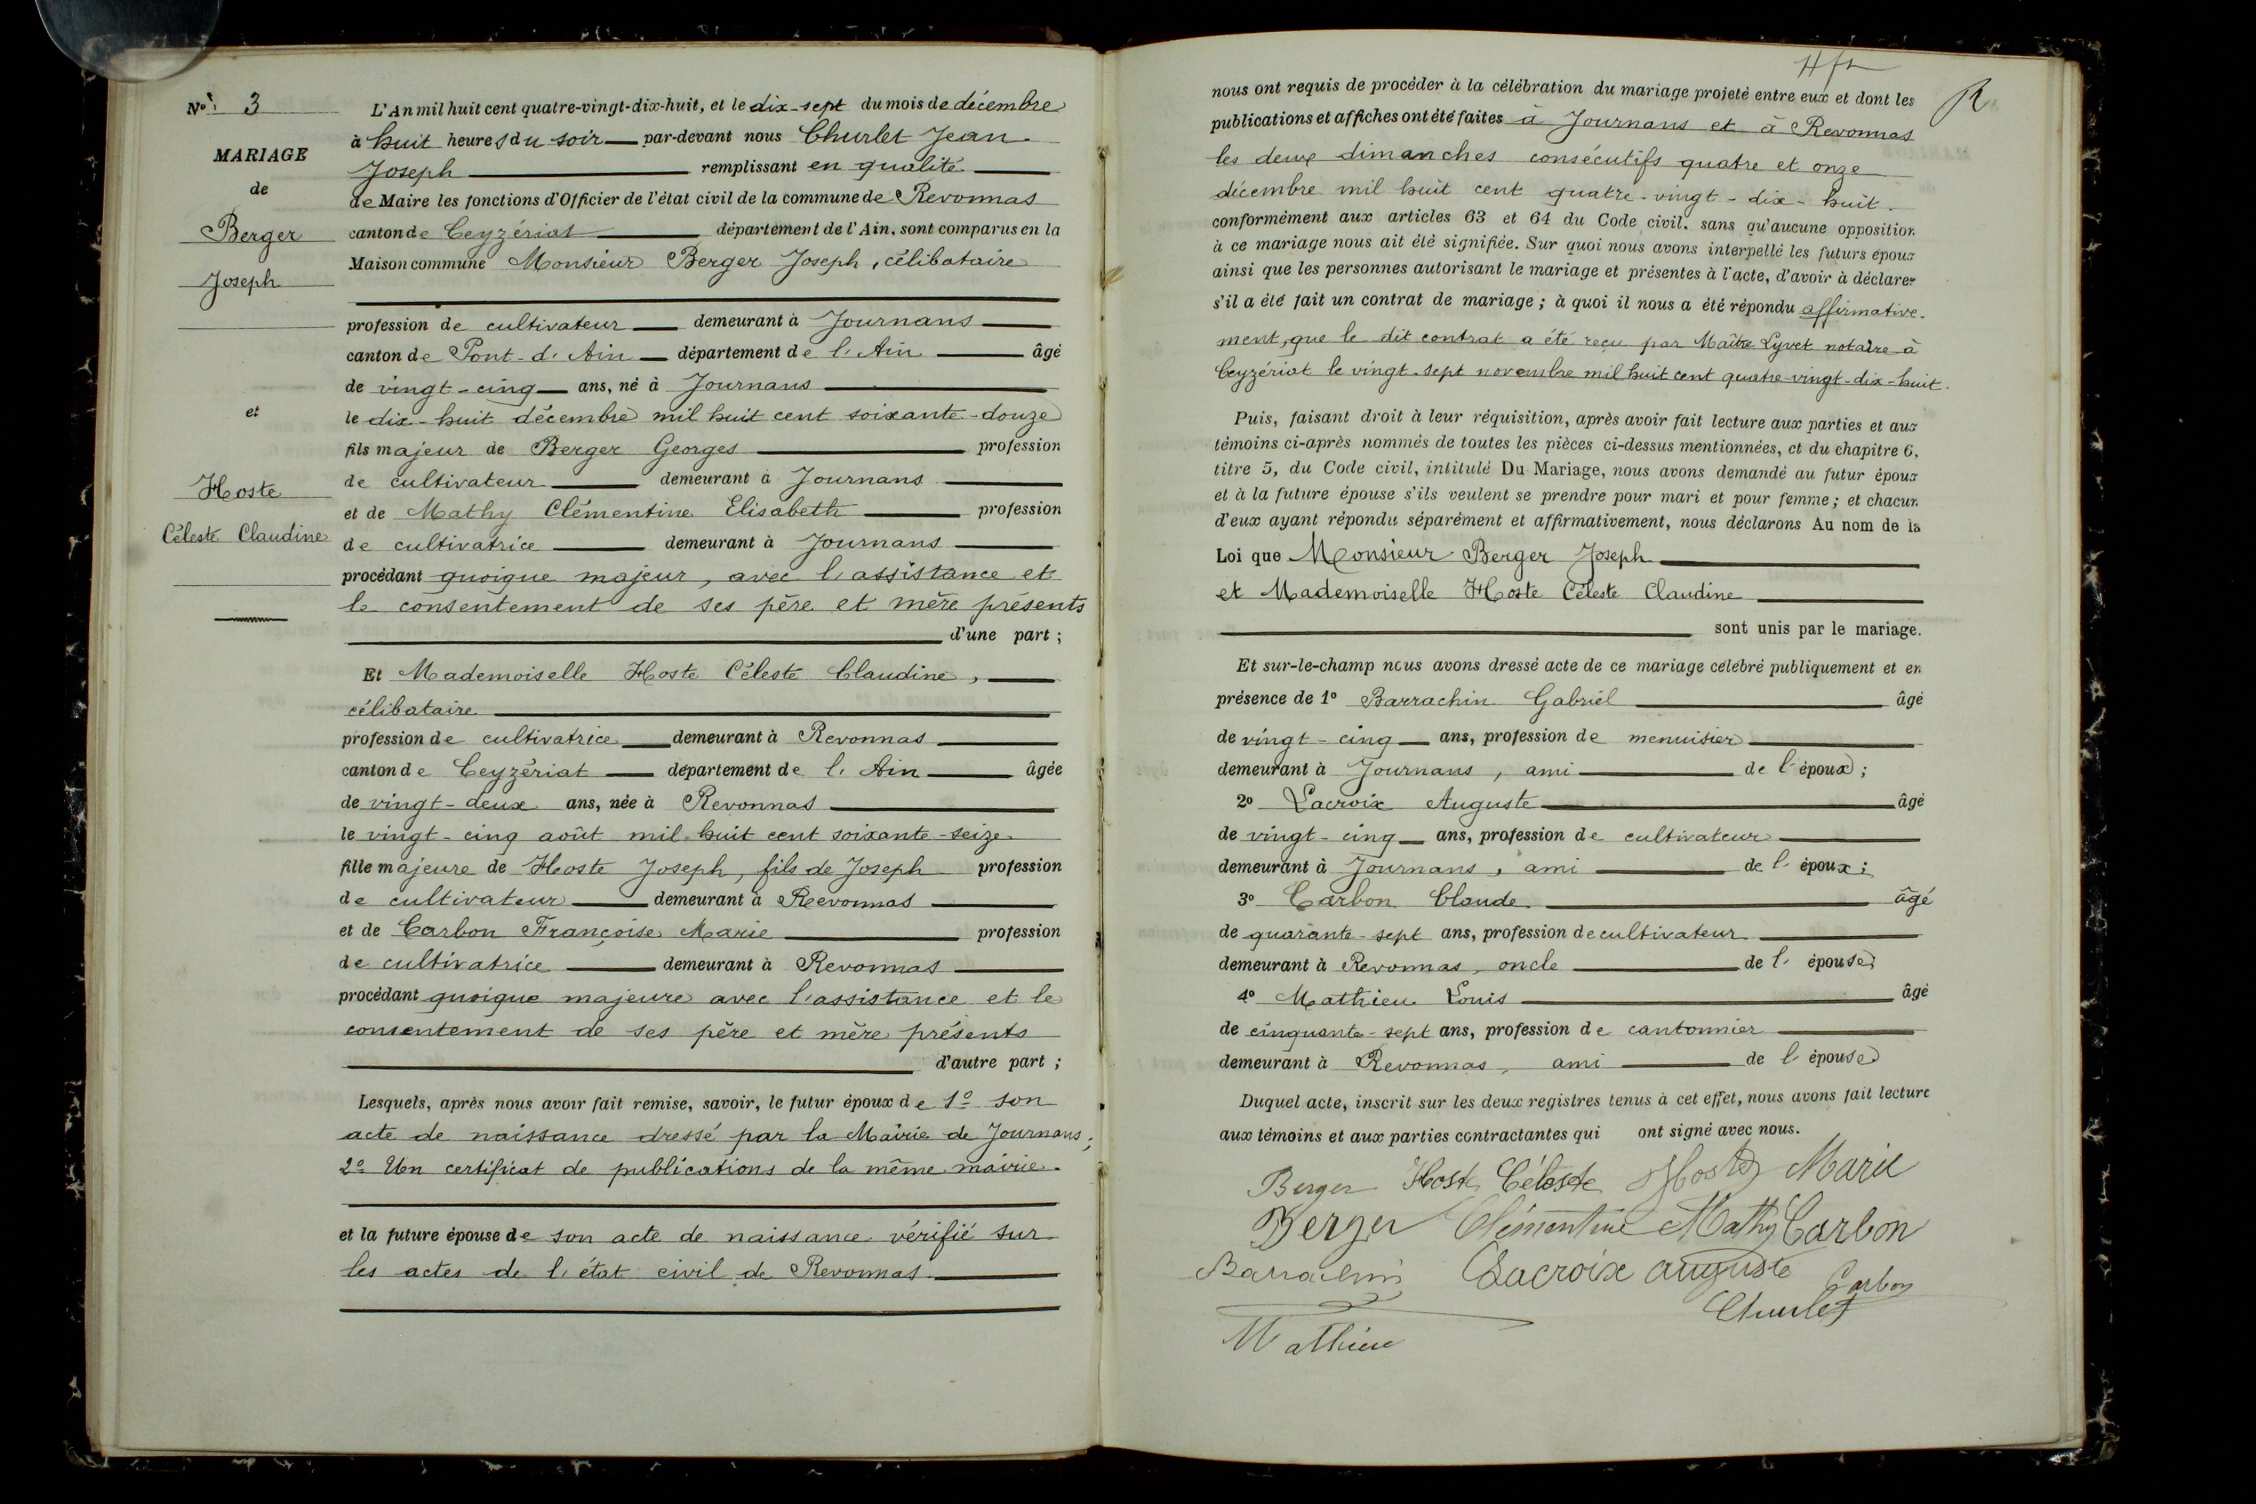 N° 3
MARIAGE
de
Berger
Joseph
et
Hoste
Céleste Claudine
L'An mil huit cent quatre-vingt-dix-huit, et le dix-sept du mois de décembre
à huit heures du soir par-devant nous Churlet Jean
Joseph remplissant en qualité
de Maire les fonctions d'Officier de l'état civil de la commune de Revonnas
canton de Ceyzériat département de l'Ain, sont comparus en la
Maison commune Monsieur Berger Joseph, célibataire
profession de cultivateur demeurant à Journans
canton de Pont-d'Ain département de l'Ain âgé
de vingt-cinq ans, né à Journans
le dix-huit décembre mil huit cent soixante-douze
fils majeur de Berger Georges profession
de cultivateur demeurant à Journans
et de Mathy Clémentine Elisabeth profession
de cultivatrice demeurant à Journans
procédant quoique majeur, avec l'assistance et
le consentement de ses père et mère présents
d'une part ;
Et Mademoiselle Hoste Céleste Claudine,
célibataire
profession de cultivatrice demeurant à Revonnas
canton de Ceyzériat département de l'Ain âgée
de vingt-deux ans, née à Revonnas
le vingt-cinq août mil huit cent soixante-seize
fille majeure de Hoste Joseph, fils de Joseph profession
de cultivateur demeurant à Revonnas
et de Carbon Françoise Marie profession
de cultivatrice demeurant à Revonnas
procédant quoique majeure avec l'assistance et le
consentement de ses père et mère présents
d'autre part ;
Lesquels, après nous avoir fait remise, savoir, le futur époux de 1° son
acte de naissance dressé par la Mairie de Journans ;
2° Un certificat de publications de la même mairie.
et la future épouse de son acte de naissance vérifié sur
les actes de l'état civil de Revonnas.
nous ont requis de procéder à la célébration du mariage projeté entre eux et dont les
publications et affiches ont été faites à Journans et à Revonnas
les deux dimanches consécutifs quatre et onze
décembre mil huit cent quatre-vingt-dix-huit.
conformément aux articles 63 et 64 du Code civil, sans qu'aucune opposition
à ce mariage nous ait été signifiée. Sur quoi nous avons interpellé les futurs époux
ainsi que les personnes autorisant le mariage et présentes à l'acte, d'avoir à déclarer
s'il a été fait un contrat de mariage ; à quoi il nous a été répondu affirmative-
ment, que le dit contrat a été reçu par Maître Lyvet notaire à
Ceyzériat le vingt-sept novembre mil huit cent quatre-vingt-dix-huit.
Puis, faisant droit à leur réquisition, après avoir fait lecture aux parties et aux
témoins ci-après nommés de toutes les pièces ci-dessus mentionnées, et du chapitre 6,
titre 5, du Code civil, intitulé Du Mariage, nous avons demandé au futur époux
et à la future épouse s'ils veulent se prendre pour mari et pour femme ; et chacun
d'eux ayant répondu séparément et affirmativement, nous déclarons Au nom de la
Loi que Monsieur Berger Joseph
et Mademoiselle Hoste Céleste Claudine
sont unis par le mariage.
Et sur-le-champ nous avons dressé acte de ce mariage célébré publiquement et en
présence de 1° Barrachin Gabriel âgé
de vingt-cinq ans, profession de menuisier
demeurant à Journans, ami de l'époux ;
2° Lacroix Auguste âgé
de vingt-cinq ans, profession de cultivateur
demeurant à Journans, ami de l'époux ;
3° Carbon Claude âgé
de quarante-sept ans, profession de cultivateur
demeurant à Revonnas, oncle de l'épouse ;
4° Mathieu Louis âgé
de cinquante-sept ans, profession de cantonnier
demeurant à Revonnas, ami de l'épouse
Duquel acte, inscrit sur les deux registres tenus à cet effet, nous avons fait lecture
aux témoins et aux parties contractantes qui ont signé avec nous.
Berger Hoste Céleste Hoste Marie
Berger Clémentine Mathy Carbon
Barrachin Lacroix auguste Carbon
Churlet
Mathieu